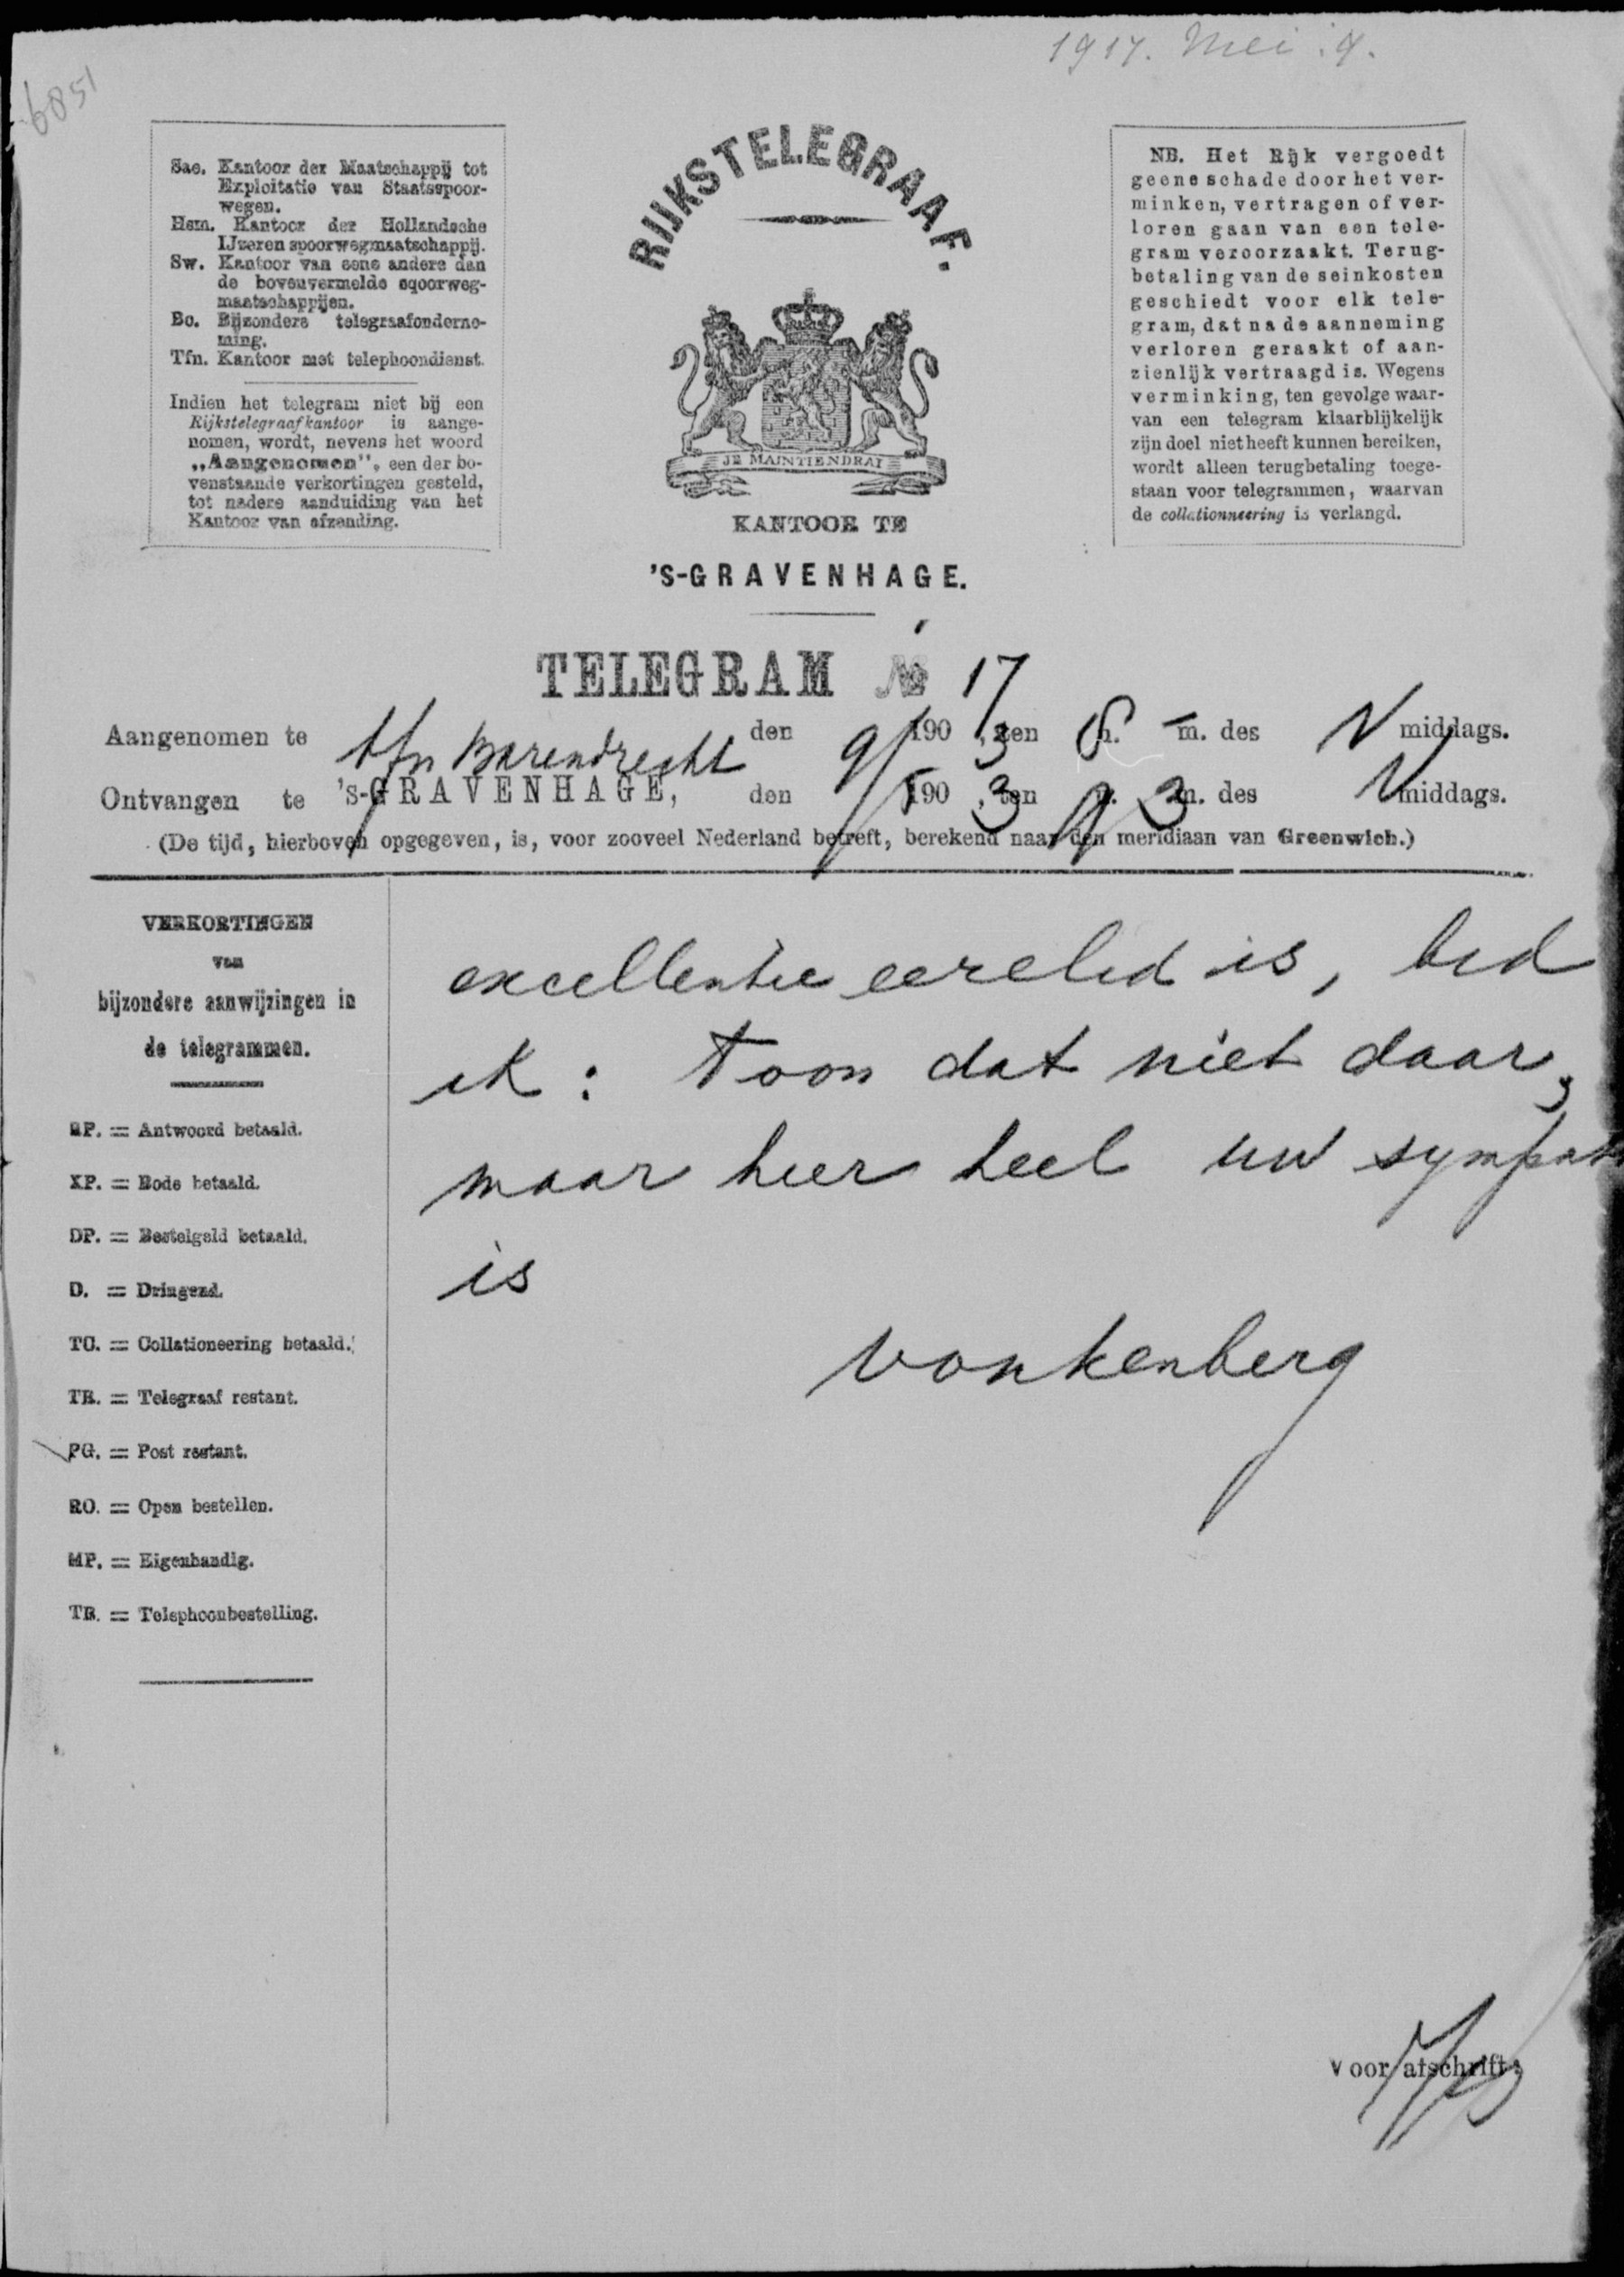 1917. Mei 9.
1589
Sae. Kantoor der Maatschappij tot
Exploitatie van Staatsspoor-
wegen.
Hsm. Kantoor der Hollandsche
IJzeren spoorwegmaatschappij.
Sw. Kantoor van eene andere dan
de bovenvermelde sqoorweg-
maatschappijen.
Bo. Bijzondere telegraafonderne-
ming.
Tfn. Kantoor met telephoondienst.
Indien het telegram niet bij een
Rijkstelegraafkantoor is aange-
nomen, wordt, nevens het woord
„Aangenomen", een der bo-
venstaande verkortingen gesteld,
tot nadere aanduiding van het
Kantoor van afzending.
RIJKSTELEGRAAF.
JE MAINTIENDRAI
KANTOOR TE
'S-GRAVENHAGE.
NB. Het Rijk vergoedt
geene schade door het ver-
minken, vertragen of ver-
loren gaan van een tele-
gram veroorzaakt. Terug-
betaling van de seinkosten
geschiedt voor elk tele-
gram, dat na de aanneming
verloren geraakt of aan-
zienlijk vertraagd is. Wegens
verminking, ten gevolge waar-
van een telegram klaarblijkelijk
zijn doel niet heeft kunnen bereiken,
wordt alleen terugbetaling toege-
staan voor telegrammen, waarvan
de collationneering is verlangd.
TELEGRAM № 17
Aangenomen te tfn Barendrecht den 9/5 190 3, ten 8 h. - m. des N middags.
Ontvangen te 's-GRAVENHAGE, den 9/5 190 3, ten 9 u. 3 m. des N middags.
(De tijd, hierboven opgegeven, is, voor zooveel Nederland betreft, berekend naar den meridiaan van Greenwich.)
VERKORTINGEN
van
bijzondere aanwijzingen in
de telegrammen.
RP. = Antwoord betaald.
XP. = Bode betaald.
DP. = Bestelgeld betaald.
D. = Dringend.
TC. = Collationeering betaald.
TR. = Telegraaf restant.
PG. = Post restant.
RO. = Open bestellen.
MP. = Eigenhandig.
TB. = Telephoonbestelling.
excellentie eerelid is, bid
ik: toon dat niet daar,
maar hier heel uw sympat
is
vonkenberg
voor afschrift: